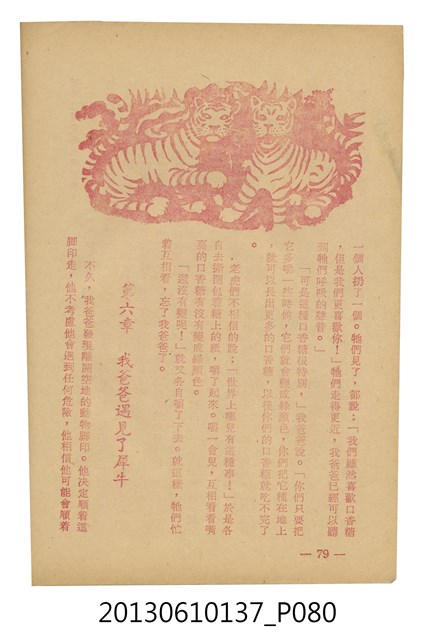 一個人扔了一個。牠們見了，都說：「我們雖然喜歡口香糖
，但是我們更喜歡你！」牠們走得更近，我爸爸已經可以聽
到牠們呼吸的聲音。」
「可是這種口香糖很特別，」我爸爸說。「你們只要把
它多嚼一些時候，它們就會變成綠顏色，你們把它種在地上
，就可以長出更多的口香糖，以後你們的口香糖就吃不完了
。
老虎們不相信的說：「世界上哪兒有這種事！」於是各
自去撕開包着糖上的紙，嚼了起來。嚼一會兒，互相看看嘴
裏的口香糖有沒有變成綠顏色。
「還沒有變呢！」就又各自嚼了下去。就這樣，牠們忙
着互相看，忘了我爸爸了。
第六章　我爸爸遇見了犀牛
不久，我爸爸發現離開空地的動物脚印。他決定順着這
脚印走，他不考慮他會遇到任何危險，他相信他可能會順着
— 79 —
20130610137_P080